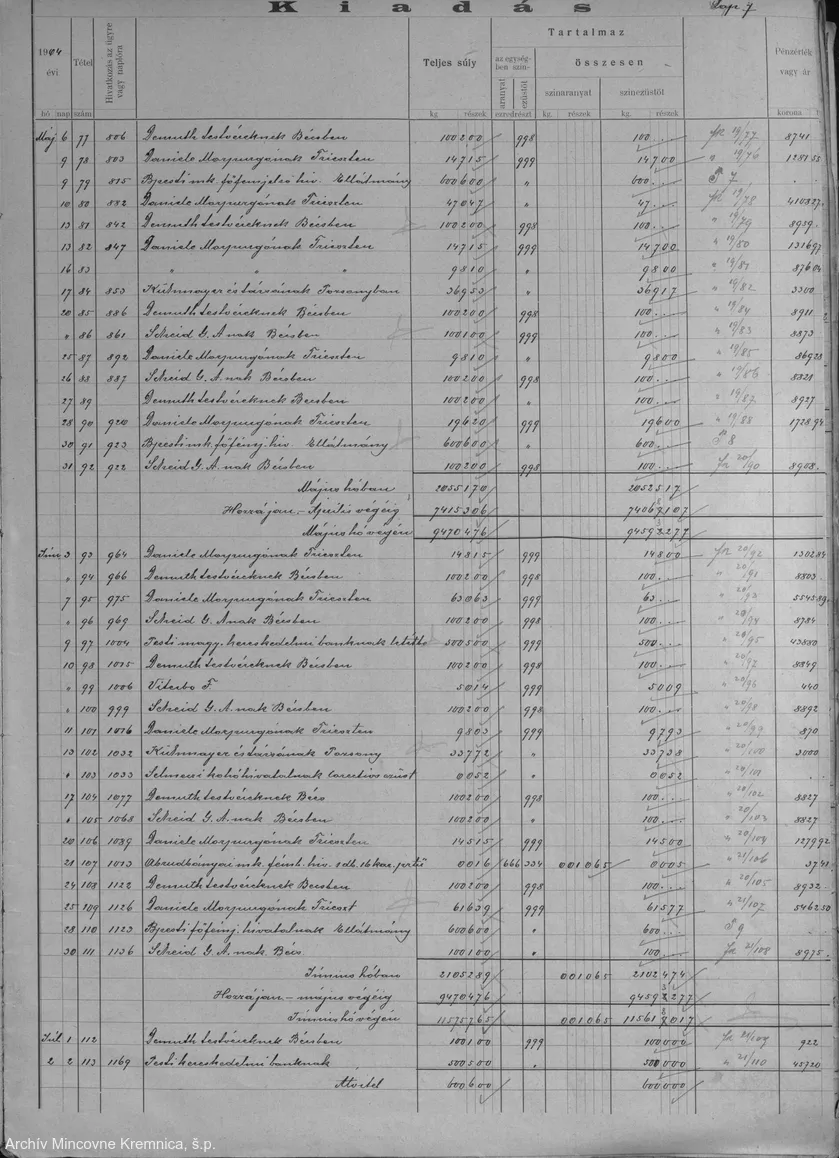 Kiadás Lap. 7
1904 évi Tétel Hivatkozás az ügyre vagy naplóra Teljes súly Tartalmaz Pénzérték vagy ár
az egységben szin- összesen
aranyat ezüstöt szinaranyat szinezüstöt
hó nap szám kg. részek ezredrészt kg. részek kg. részek korona
Máj. 6 77 806 Demuth testvéreknek Bécsben 100200 998 100... 19/77 8741
9 78 803 Daniele Morpurgónak Trieszten 14715 999 14700 " 19/76
9 79 815 Bpesti mk. főfémjelző hiv. Ellátmány 600600 " 600... 7
10 80 882 Daniele Morpurgónak Trieszten 47047 " 47... 19/78
13 81 842 Demuth testvéreknek Bécsben 100200 998 100... " 19/79 8939
13 82 847 Daniele Morpurgónak Trieszten 14715 999 14700 " 19/80
16 83 " " " 9810 " 9800 " 19/81
17 84 853 36953 " 36917 " 19/82 3300
20 85 886 Demuth testvéreknek Bécsben 100200 998 100... " 19/84 8911
" 86 861 Scheid G. A. nak Bécsben 100100 999 100... " 19/83 8873
25 87 892 Daniele Morpurgónak Trieszten 9810 " 9800 " 19/85
26 88 887 Scheid G. A. nak Bécsben 100200 998 100... " 19/86
27 89 Demuth testvéreknek Bécsben 100200 " 100... " 19/87 8927
28 90 920 Daniele Morpurgónak Trieszten 19620 999 19600 " 19/88
30 91 923 Bpesti mk. főfémj. hiv. Ellátmány 600600 " 600... 8
31 92 922 Scheid G. A. nak Bécsben 100200 998 100... 20/90 8908
Május hóban 2055170 2052517
Hozzá jan. - Április végéig 7415306
Május hó végén 9470476
Jún. 3 93 964 Daniele Morpurgónak Trieszten 14815 999 14800 20/92
" 94 966 Demuth testvéreknek Bécsben 100200 998 100... " 20/91 8803
7 95 975 Daniele Morpurgónak Trieszten 63063 999 63... " 20/93
" 96 969 Scheid G. A. nak Bécsben 100200 998 100... " 20/94 8784
9 97 1004 Pesti magy. kereskedelmi banknak 500500 999 500... " 20/95 43880
10 98 1015 Demuth testvéreknek Bécsben 100200 998 100... " 20/97 8849
" 99 1006 Viterbo F. 5014 999 5009 " 20/96 440
" 100 999 Scheid G. A. nak Bécsben 100200 998 100... " 20/98 8892
11 101 1016 Daniele Morpurgónak Trieszten 9803 999 9793 " 20/99 870
13 102 1032 33772 " 33738 " 20/100 3000
" 103 1033 Selmeczi kohóhivatalnak 0052 " 0052 " /101
17 104 1077 Demuth testvéreknek Bécs 100200 998 100... " 20/102 8827
" 105 1068 Scheid G. A. nak Bécsben 100200 " 100... " 20/103 8827
20 106 1089 Daniele Morpurgónak Trieszten 14515 999 14500 " 20/104
21 107 1013 Abrudbányai mk. fémb. hiv. 0016 666 334 001065 0005 " 21/106
24 108 1122 Demuth testvéreknek Bécsben 100200 998 100... " 20/105 8932
25 109 1126 Daniele Morpurgónak Trieszt 61639 999 61577 " 21/107
28 110 1123 Bpesti főfémj. hivatalnak Ellátmány 600600 " 600... 9
30 111 1136 Scheid G. A. nak Bécs 100100 " 100... 21/108 8975
Június hóban 2105289 001065 2102474
Hozzá jan. - május végéig 9470476
Június hó végén 11575765 001065
Júl. 1 112 Demuth testvéreknek Bécsben 100100 999 100000 21/109 922
2 2 113 1169 Pesti kereskedelmi banknak 500500 " 500000 " 21/110 45720
Átvitel 600600 600000
Archív Mincovne Kremnica, š.p.